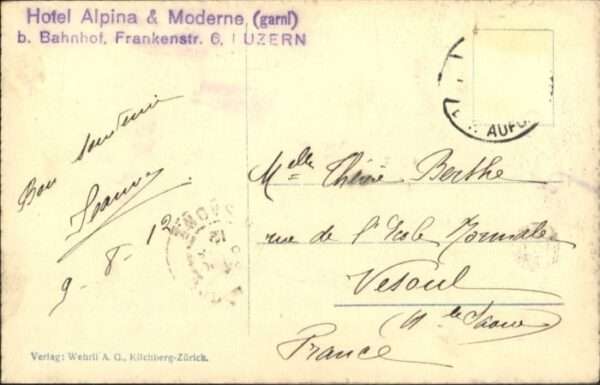 Hotel Alpina & Moderne (garni)
b. Bahnhof, Frankenstr. 6, LUZERN
AUFG
Bon souvenir
Jeanne
9-8-12
Melle Berthe
rue de l'Ecole Normale
Vesoul
Hte Saone
France
Verlag: Wehrli A. G., Kilchberg-Zürich.